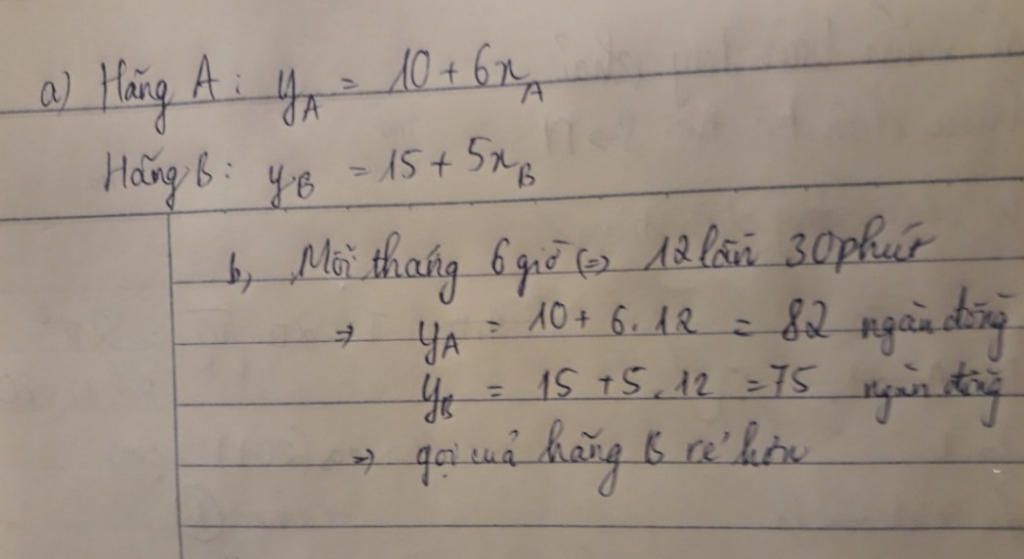 a) Hãng A: y_A = 10 + 6x_A
Hãng B: y_B = 15 + 5x_B
b, Mỗi tháng 6 giờ (=) 12 lần 30 phút
=> y_A = 10 + 6.12 = 82 ngàn đồng
y_B = 15 + 5.12 = 75 ngàn đồng
=> gọi của hãng B rẻ hơn